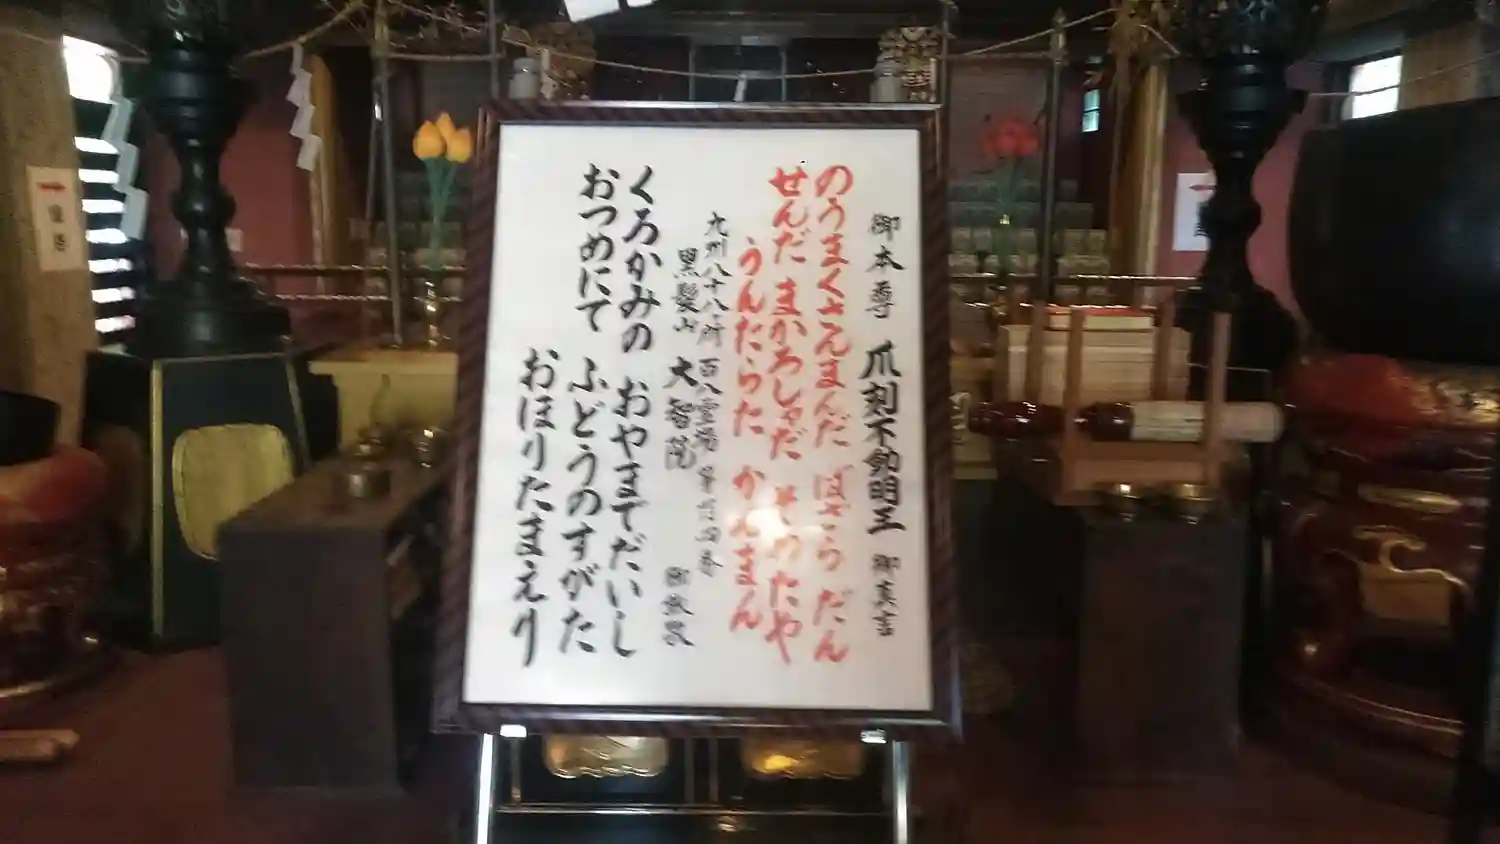 御本尊 爪刻不動明王 御真言
のうまくさんまんだ ばざら だん
せんだ まかろしゃだ そわたや
うんたらた かんまん
九州八十八ヶ所 百八霊場 第百四番
黒髪山 大智院 御詠歌
くろかみの おやまでだいし
おつめにて ふどうのすがた
おほりたまえり